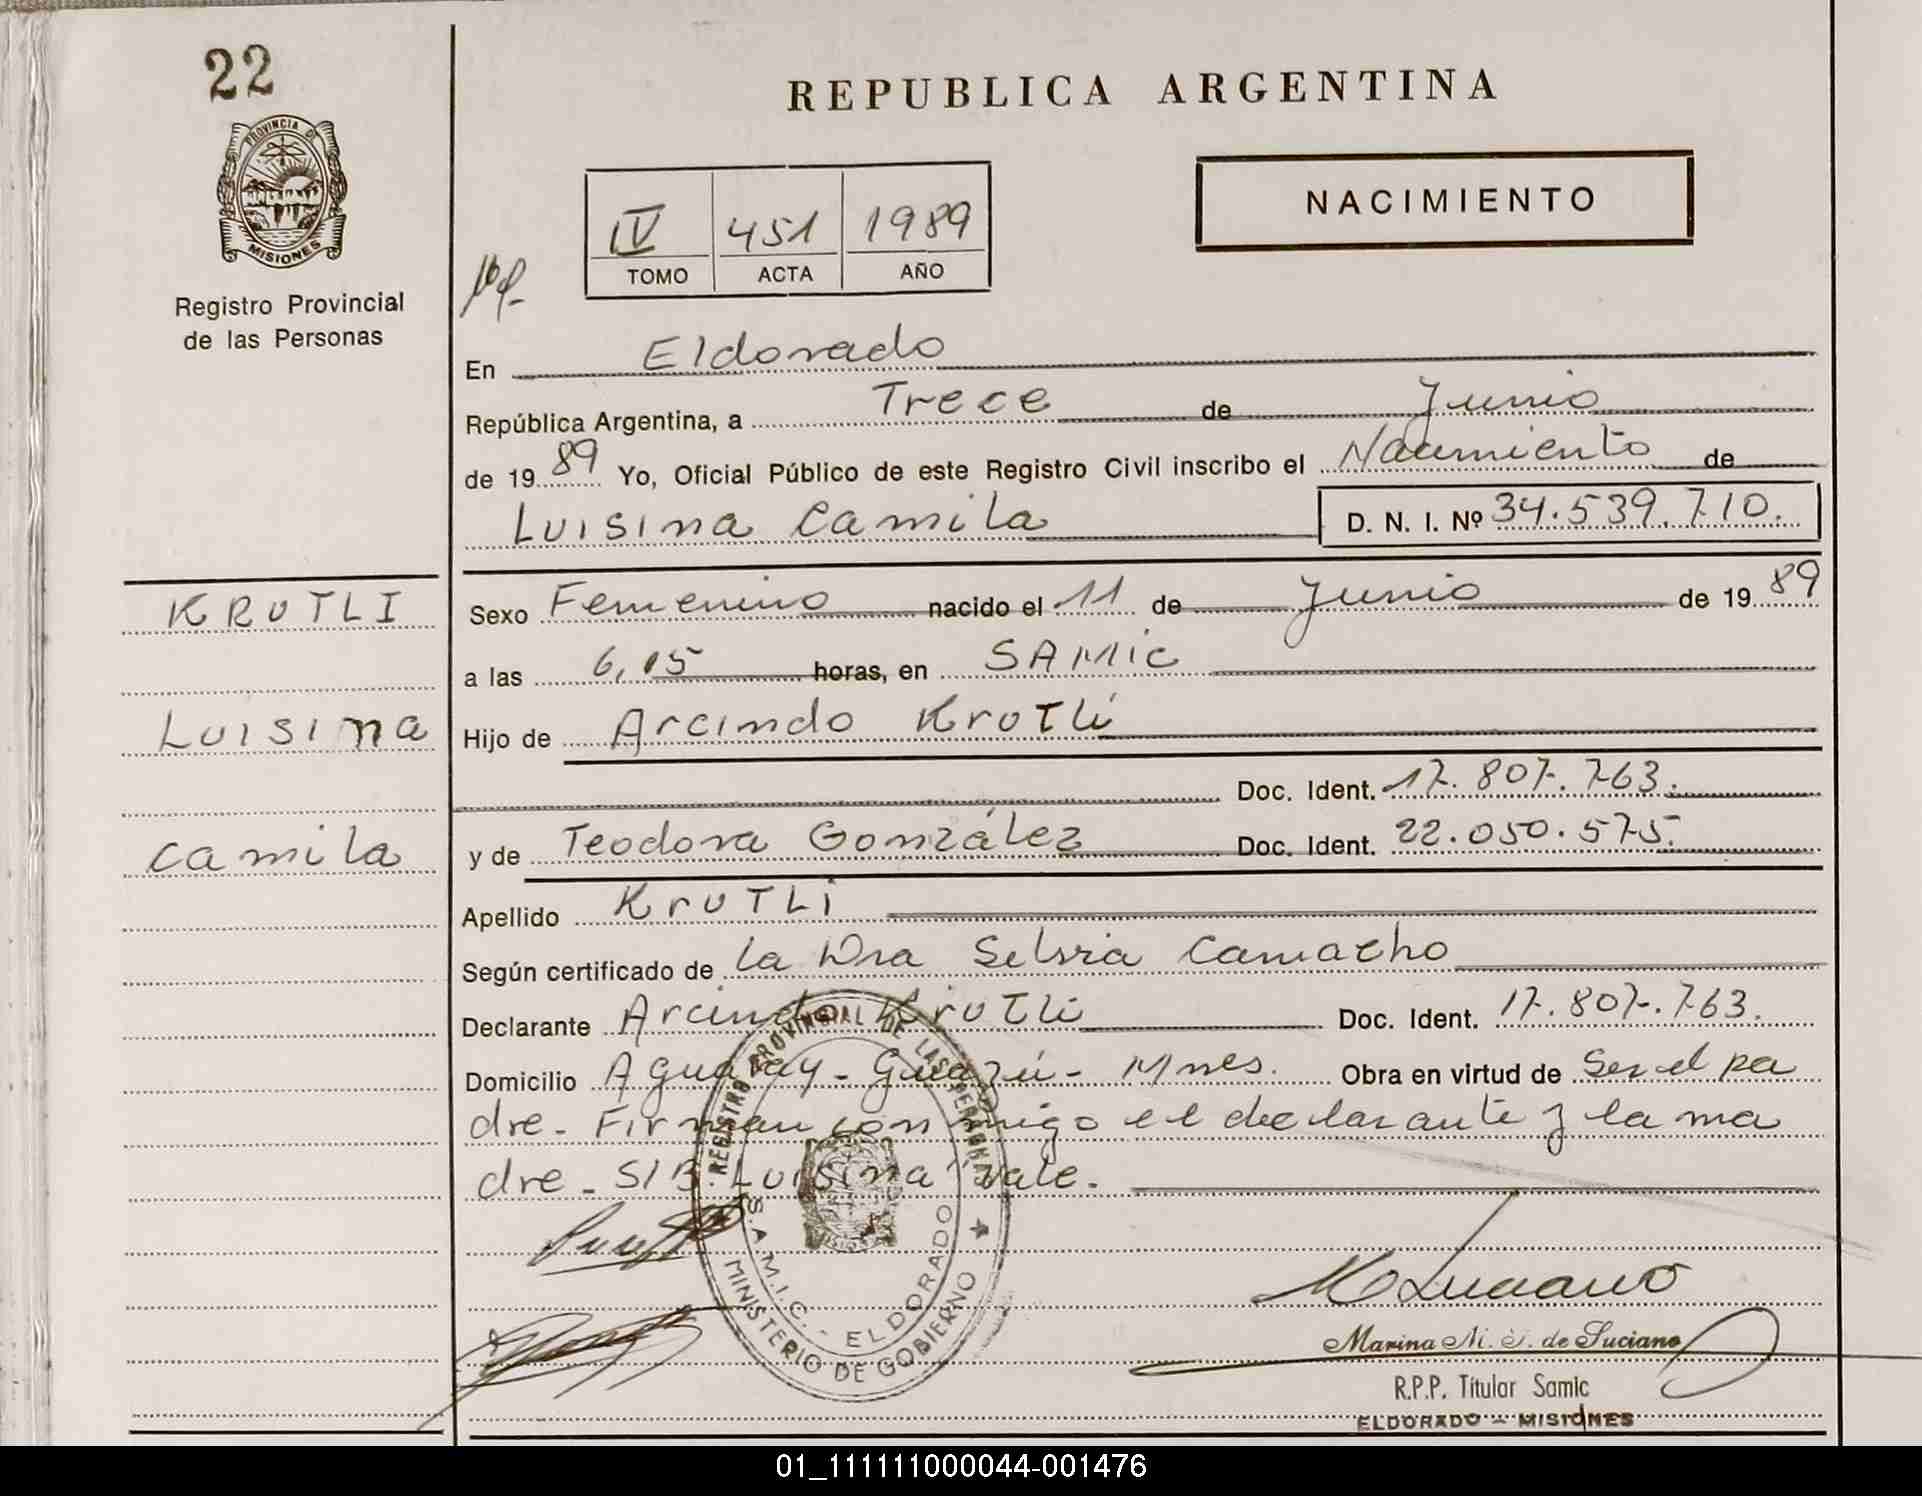 22
PROVINCIA DE
MISIONES
Registro Provincial
de las Personas
REPUBLICA ARGENTINA
NACIMIENTO
IV 451 1989
TOMO ACTA AÑO
En Eldorado
República Argentina, a Trece de Junio
de 1989 Yo, Oficial Público de este Registro Civil inscribo el Nacimiento de
Luisina Camila D. N. I. Nº 34.539.710.
KRUTLI
Luisina
Camila
Sexo Femenino nacido el 11 de Junio de 1989
a las 6,15 horas, en SAMIC
Hijo de Arcindo Krutli
Doc. Ident. 17.807.763.
y de Teodora González Doc. Ident. 22.050.575.
Apellido KrUTLi
Según certificado de la Dra Selvia Camacho
Declarante Arcindo Krutli Doc. Ident. 17.807.763.
Domicilio Aguaray-Guazú- Mnes. Obra en virtud de Ser el pa
dre- Firman conmigo el declarante y la ma
dre- S/B: Luisina "vale.
REGISTRO PROVINCIAL DE LAS PERSONAS
S.A.M.I.C. - ELDORADO
MINISTERIO DE GOBIERNO
M Luciano
Marina N. S. de Luciano
R.P.P. Titular Samic
ELDORADO - MISIONES
01_111111000044-001476